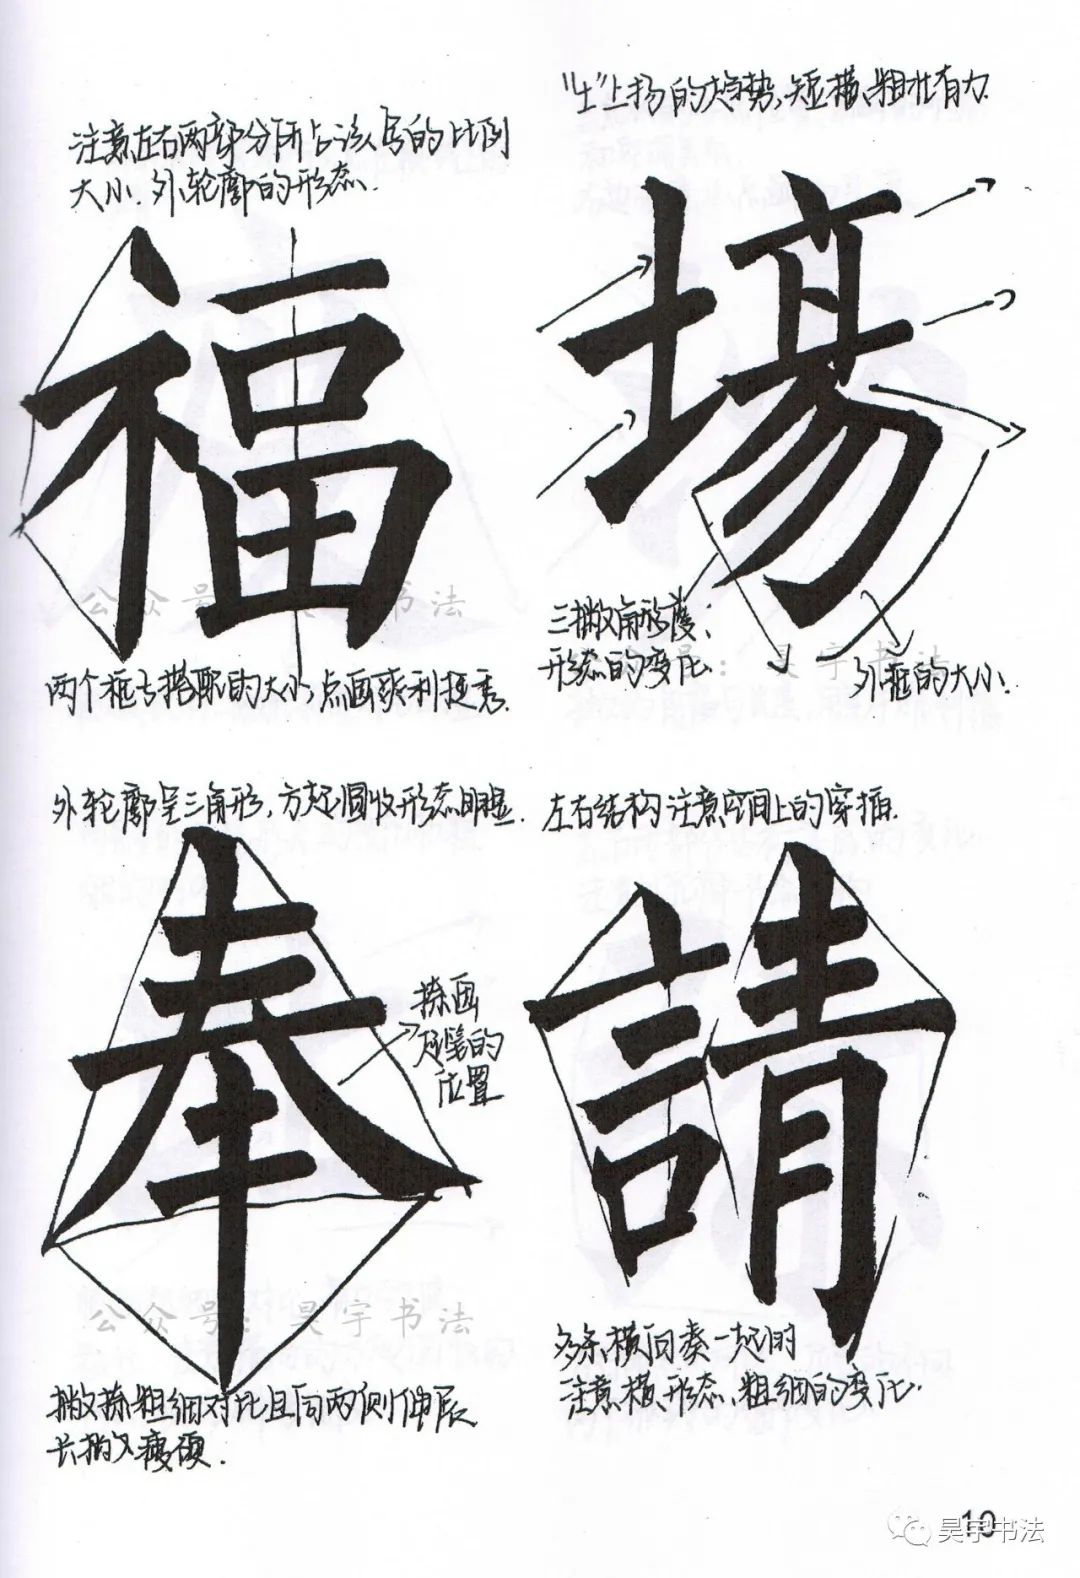 注意左右两部分所占该写的比例
大小.外轮廓的形态.
福
公众号:昊宇书法
两个框与搭配的大小,点画爽利挺秀.
"土"上扬的趋势,短横粗壮有力.
場
三撇角形度:
形态的变化
外框的大小.
号:昊宇书法
外轮廓呈三角形,方起圆收形态明显.
奉
捺画
起笔的
位置
公众号:昊宇书法
撇捺粗细对比且向两侧伸展
长撇瘦硬.
左右结构注意空间上的穿插.
請
多条横向奏一起时
注意横形态、粗细的变化.
10
昊宇书法